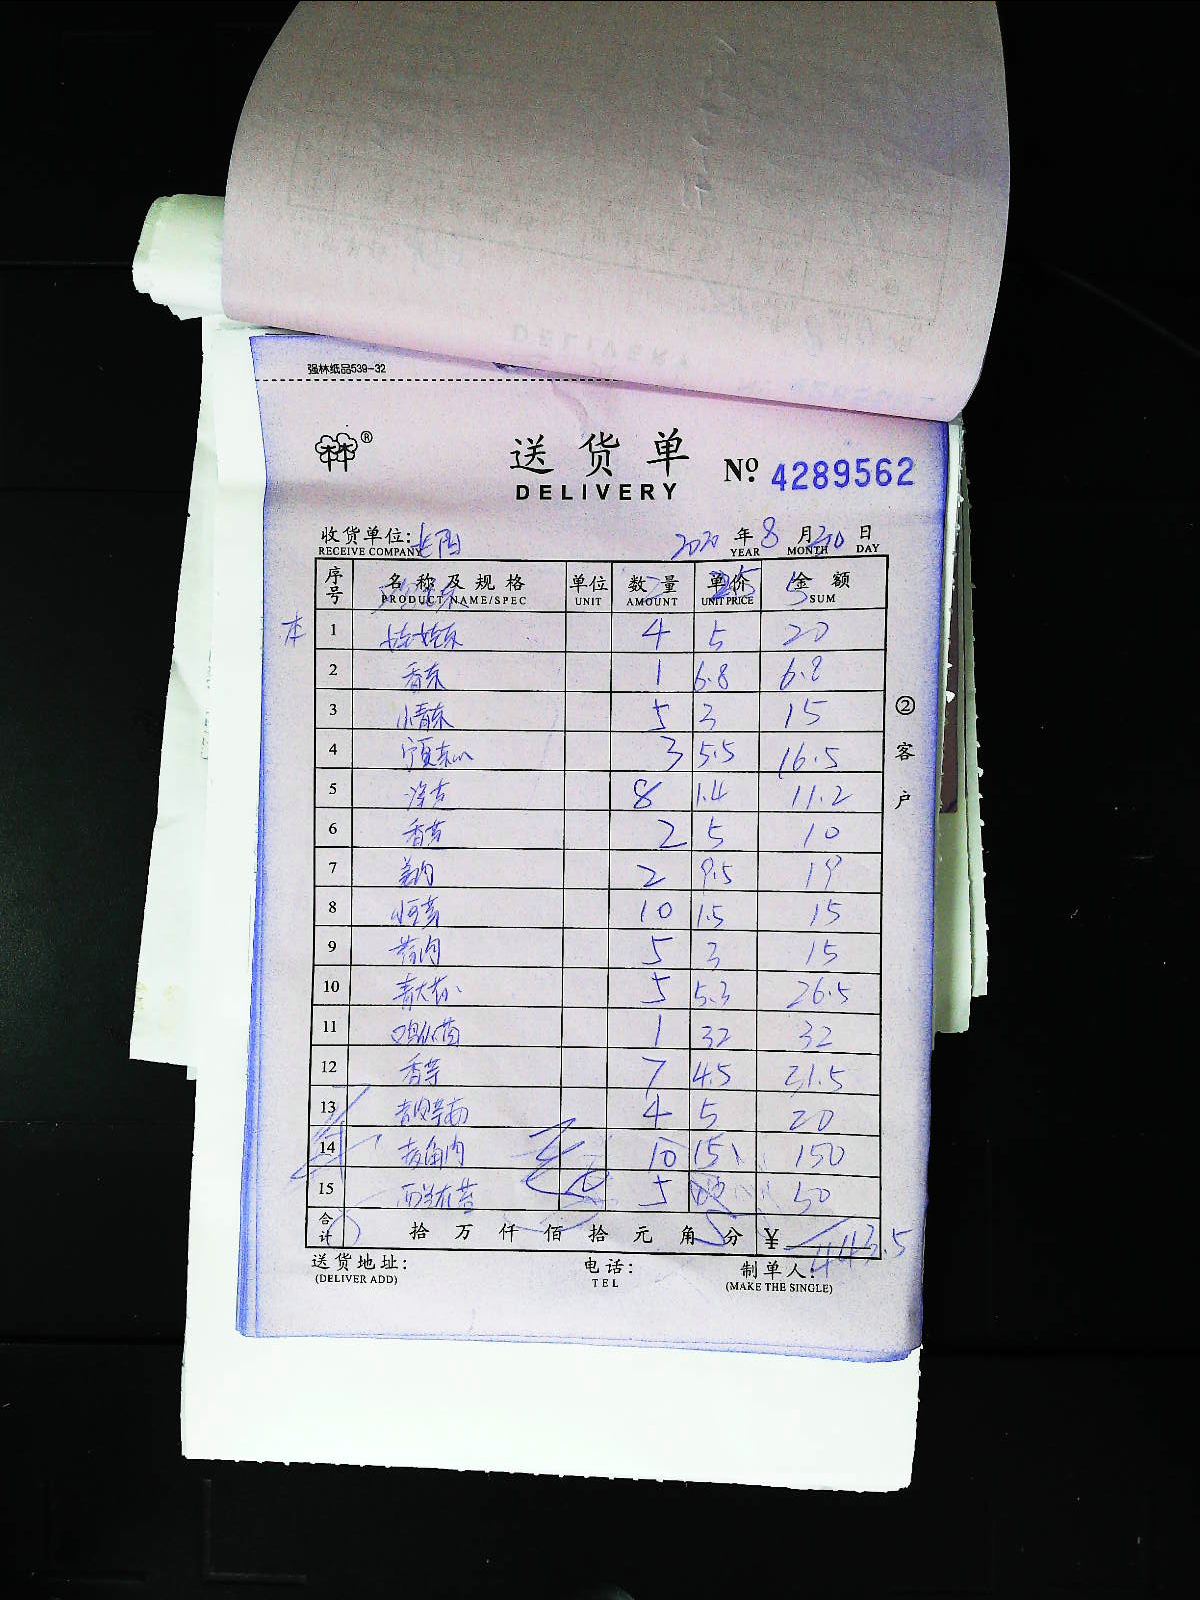 强林纸品539-32
林林®
送货单
DELIVERY
No. 4289562
收货单位:
RECEIVE COMPANY
2020 年 8 月 20 日
YEAR MONTH DAY
序号 名称及规格 单位 数量 单价 金额
PRODUCT NAME/SPEC UNIT AMOUNT UNIT PRICE SUM
5 5
本 1 娃娃菜 4 5 20
2 香菜 1 6.8 6.8
3 小青菜 5 3 15
4 宁夏菜心 3 5.5 16.5
5 8 1.4 11.2
6 2 5 10
7 姜肉 2 9.5 19
8 10 1.5 15
9 5 3 15
10 5 5.3 26.5
11 1 32 32
12 香芋 7 4.5 31.5
13 4 5 20
14 10 15 150
15 5 50
合计 拾 万 仟 佰 拾 元 角 分 ¥ 443.5
送货地址: 电话: 制单人:
(DELIVER ADD) TEL (MAKE THE SINGLE)
②客户